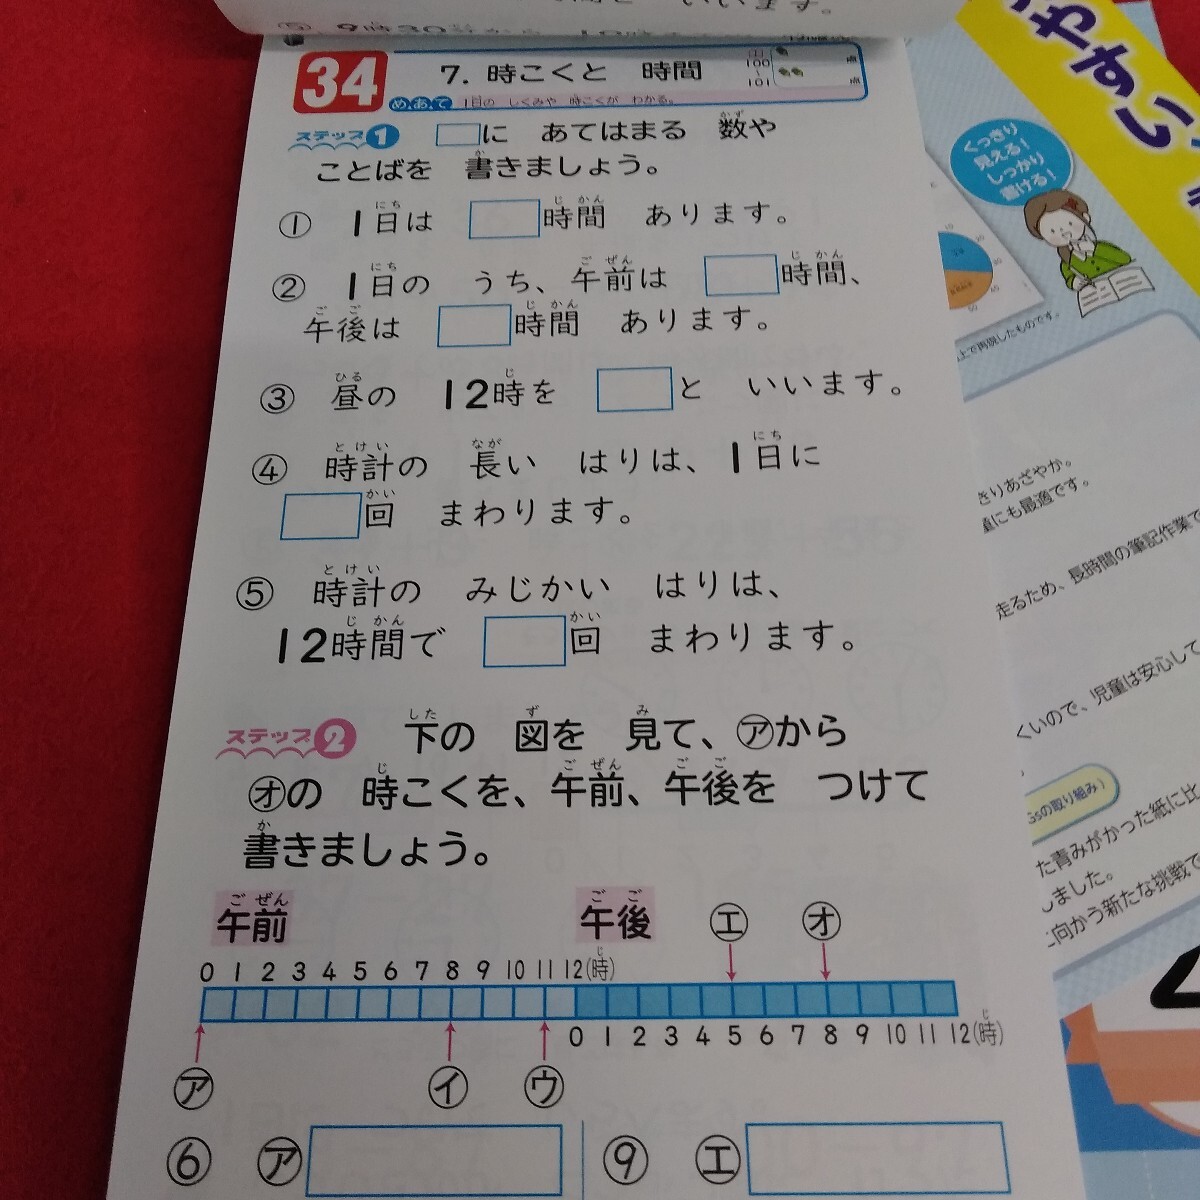 いいます。
34
7. 時こくと 時間
100
101
点
点
めあて 1日の しくみや 時こくが わかる。
ステップ1 □に あてはまる 数や
ことばを 書きましょう。
① 1日は □時間 あります。
② 1日の うち、午前は □時間、
午後は □時間 あります。
③ 昼の 12時を □と いいます。
④ 時計の 長い はりは、1日に
□回 まわります。
⑤ 時計の みじかい はりは、
12時間で □回 まわります。
ステップ2 下の 図を 見て、㋐から
㋔の 時こくを、午前、午後を つけて
書きましょう。
午前 午後 ㋓ ㋔
0 1 2 3 4 5 6 7 8 9 10 11 12(時)
0 1 2 3 4 5 6 7 8 9 10 11 12(時)
㋐ ㋑ ㋒
⑥ ㋐ ⑨ ㋓
やすい
くっきり
見える!
しっかり
書ける!
上で再現したものです。
きりあざやか。
にも最適です。
走るため、長時間の筆記作業で
くいので、児童は安心して
の取り組み)
た青みがかった紙に比
しました。
に向かう新たな挑戦で